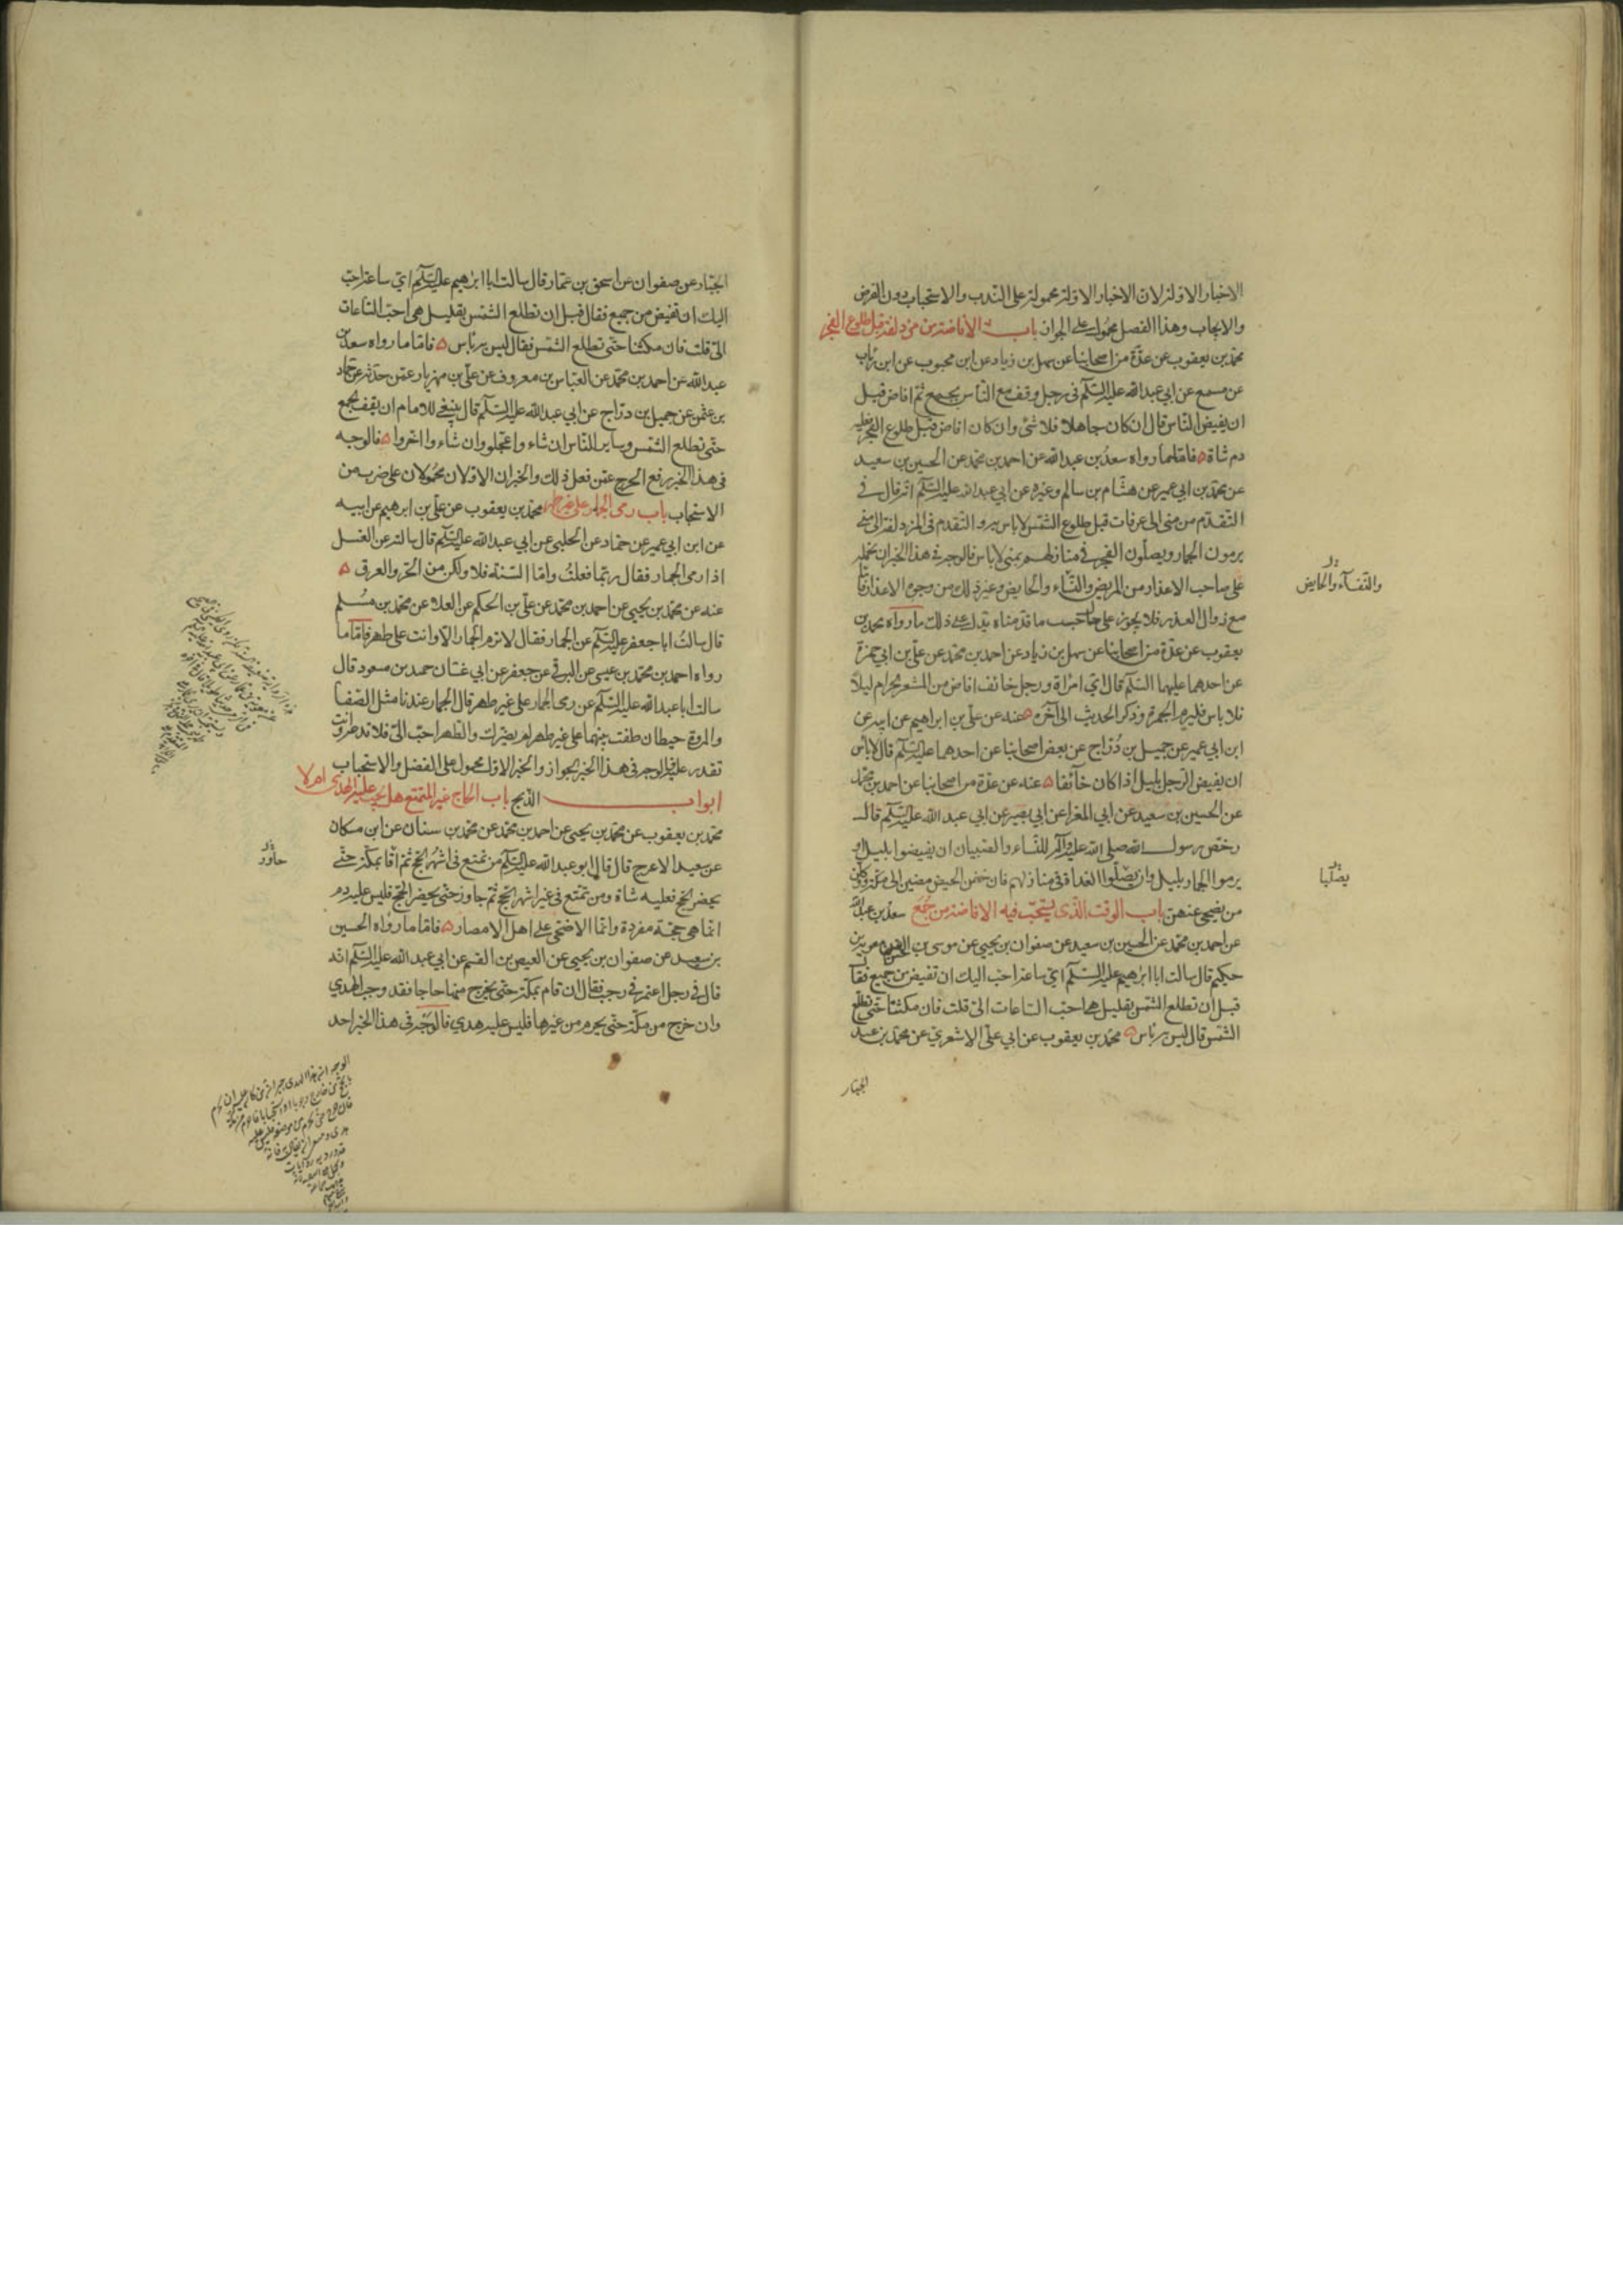 الاخبار الاولة لان الاخبار الاولة محمولة على الندب والاستحباب دون الفرض
والايجاب وهذا الفصل محمول على الجواز باب الافاضة من مزدلفة قبل طلوع الفجر
محمد بن يعقوب عن عدة من اصحابنا عن سهل بن زياد عن ابن محبوب عن ابن رئاب
عن مسمع عن ابي عبد الله عليه السلم في رجل وقف مع الناس بجمع ثم افاض قبل
ان يفيض الناس قال ان كان جاهلا فلا شئ وان كان افاض قبل طلوع الفجر فعليه
دم شاة فاما ما رواه سعد بن عبد الله عن احمد بن محمد عن الحسين بن سعيد
عن محمد بن ابي عمير عن هشام بن سالم وغيره عن ابي عبد الله عليه السلم انه قال في
التقدم من منى الى عرفات قبل طلوع الشمس لا باس به والتقدم في المزدلفة الى منى
يرمون الجمار ويصلون الفجر في منازلهم بمنى لا باس فالوجه في هذا الخبر ان نحمله
على صاحب الاعذار من المريض والنساء والخايض وغير ذلك من وجوه الاعذار فاما
مع زوال العذر فلا يجوز على حال حسب ما قدمناه يدل على ذلك ما رواه محمد بن
يعقوب عن عدة من اصحابنا عن سهل بن زياد عن احمد بن محمد عن علي بن ابي حمزة
عن احدهما عليهما السلم قال اي امراة ورجل خائف افاض من المشعر الحرام ليلا
فلا باس فليرم الجمرة وذكر الحديث الى آخره عنه عن علي بن ابراهيم عن ابيه عن
ابن ابي عمير عن جميل بن دراج عن بعض اصحابنا عن احدهما عليه السلم قال لا باس
ان يفيض الرجل بليل اذا كان خائفا عنه عن عدة من اصحابنا عن احمد بن محمد
عن الحسين بن سعيد عن ابي المغرا عن ابي بصير عن ابي عبد الله عليه السلم قال
رخص رسول الله صلى الله عليه وآله للنساء والصبيان ان يفيضوا بليل و
يرموا الجمار بليل وان يصلوا الغداة في منازلهم فان خفن الحيض مضين الى مكة ووكلن
من يضحي عنهن باب الوقت الذي يستحب فيه الافاضة من جمع سعد بن عبد الله
عن احمد بن محمد عن الحسين بن سعيد عن صفوان بن يحيى عن موسى بن
حكيم قال سالت ابا ابراهيم عليه السلم اي ساعة احب اليك ان نفيض من جميع فقال
قبل ان تطلع الشمس بقليل هي احب الساعات الي قلت فان مكثنا حتى تطلع
الشمس قال ليس به باس محمد بن يعقوب عن ابي علي الاشعري عن محمد بن عبد
الجبار
والنفسآء والحايض
يصليا
الجبار عن صفوان عن اسحق بن عمار قال سالت ابا ابراهيم عليه السلم اي ساعة احب
اليك ان نفيض من جميع فقال قبل ان تطلع الشمس بقليل هي احب الساعات
الي قلت فان مكثنا حتى تطلع الشمس فقال ليس به باس فاما ما رواه سعد بن
عبد الله عن احمد بن محمد عن العباس بن معروف عن علي بن مهزيار عمن حدثه عن حماد
بن عثمن عن جميل بن دراج عن ابي عبد الله عليه السلم قال ينبغي للامام ان يقف بجمع
حتى تطلع الشمس وساير الناس ان شاءوا عجلوا وان شاءوا اخروا فالوجه
في هذا الخبر رفع الحرج عمن فعل ذلك والخبران الاولان محمولان على ضرب من
الاستحباب باب رمي الجمار على غير طهر محمد بن يعقوب عن علي بن ابرهيم عن ابيه
عن ابن ابي عمير عن حماد عن الحلبي عن ابي عبد الله عليه السلم قال سالته عن الغسل
اذا رمى الجمار فقال ربما فعلت واما السنة فلا ولكن من الحر والعرق
عنه عن محمد بن يحيى عن احمد بن محمد عن علي بن الحكم عن العلاء عن محمد بن مسلم
قال سالت ابا جعفر عليه السلم عن الجمار فقال لا ترم الجمار الا وانت على طهر فاما ما
رواه احمد بن محمد بن عيسى عن البرقي عن جعفر عن ابي غسان حمد بن مسعود قال
سالت ابا عبد الله عليه السلم عن رمي الجمار على غير طهر قال الجمار عندنا مثل الصفا
والمروة حيطان طفت بينهما على غير طهر لم يضرك والطهر احب الي فلا تدعه وانت
تقدر عليه فالوجه في هذا الخبر الجواز والخبر الاول محمول على الفضل والاستحباب
ابواب الذبح باب الحاج غير المتمتع هل يجب عليه الهدي ام لا
محمد بن يعقوب عن محمد بن يحيى عن احمد بن محمد عن محمد بن سنان عن ابن مسكان
عن سعيد الاعرج قال قال ابو عبد الله عليه السلم من تمتع في اشهر الحج ثم اقام بمكة حتى
يحضر الحج فعليه شاة ومن تمتع في غير اشهر الحج ثم جاوز حتى يحضر الحج فليس عليه دم
انما هي حجة مفردة وانما الاضحى على اهل الامصار فاما ما رواه الحسين
بن سعيد عن صفوان بن يحيى عن العيص بن القسم عن ابي عبد الله عليه السلم انه
قال في رجل اعتمر في رجب فقال ان قام بمكة حتى يخرج منها حاجا فقد وجب الهدي
وان خرج من مكة حتى يحرم من غيرها فليس عليه هدي فالوجه في هذا الخبر احد
جاور